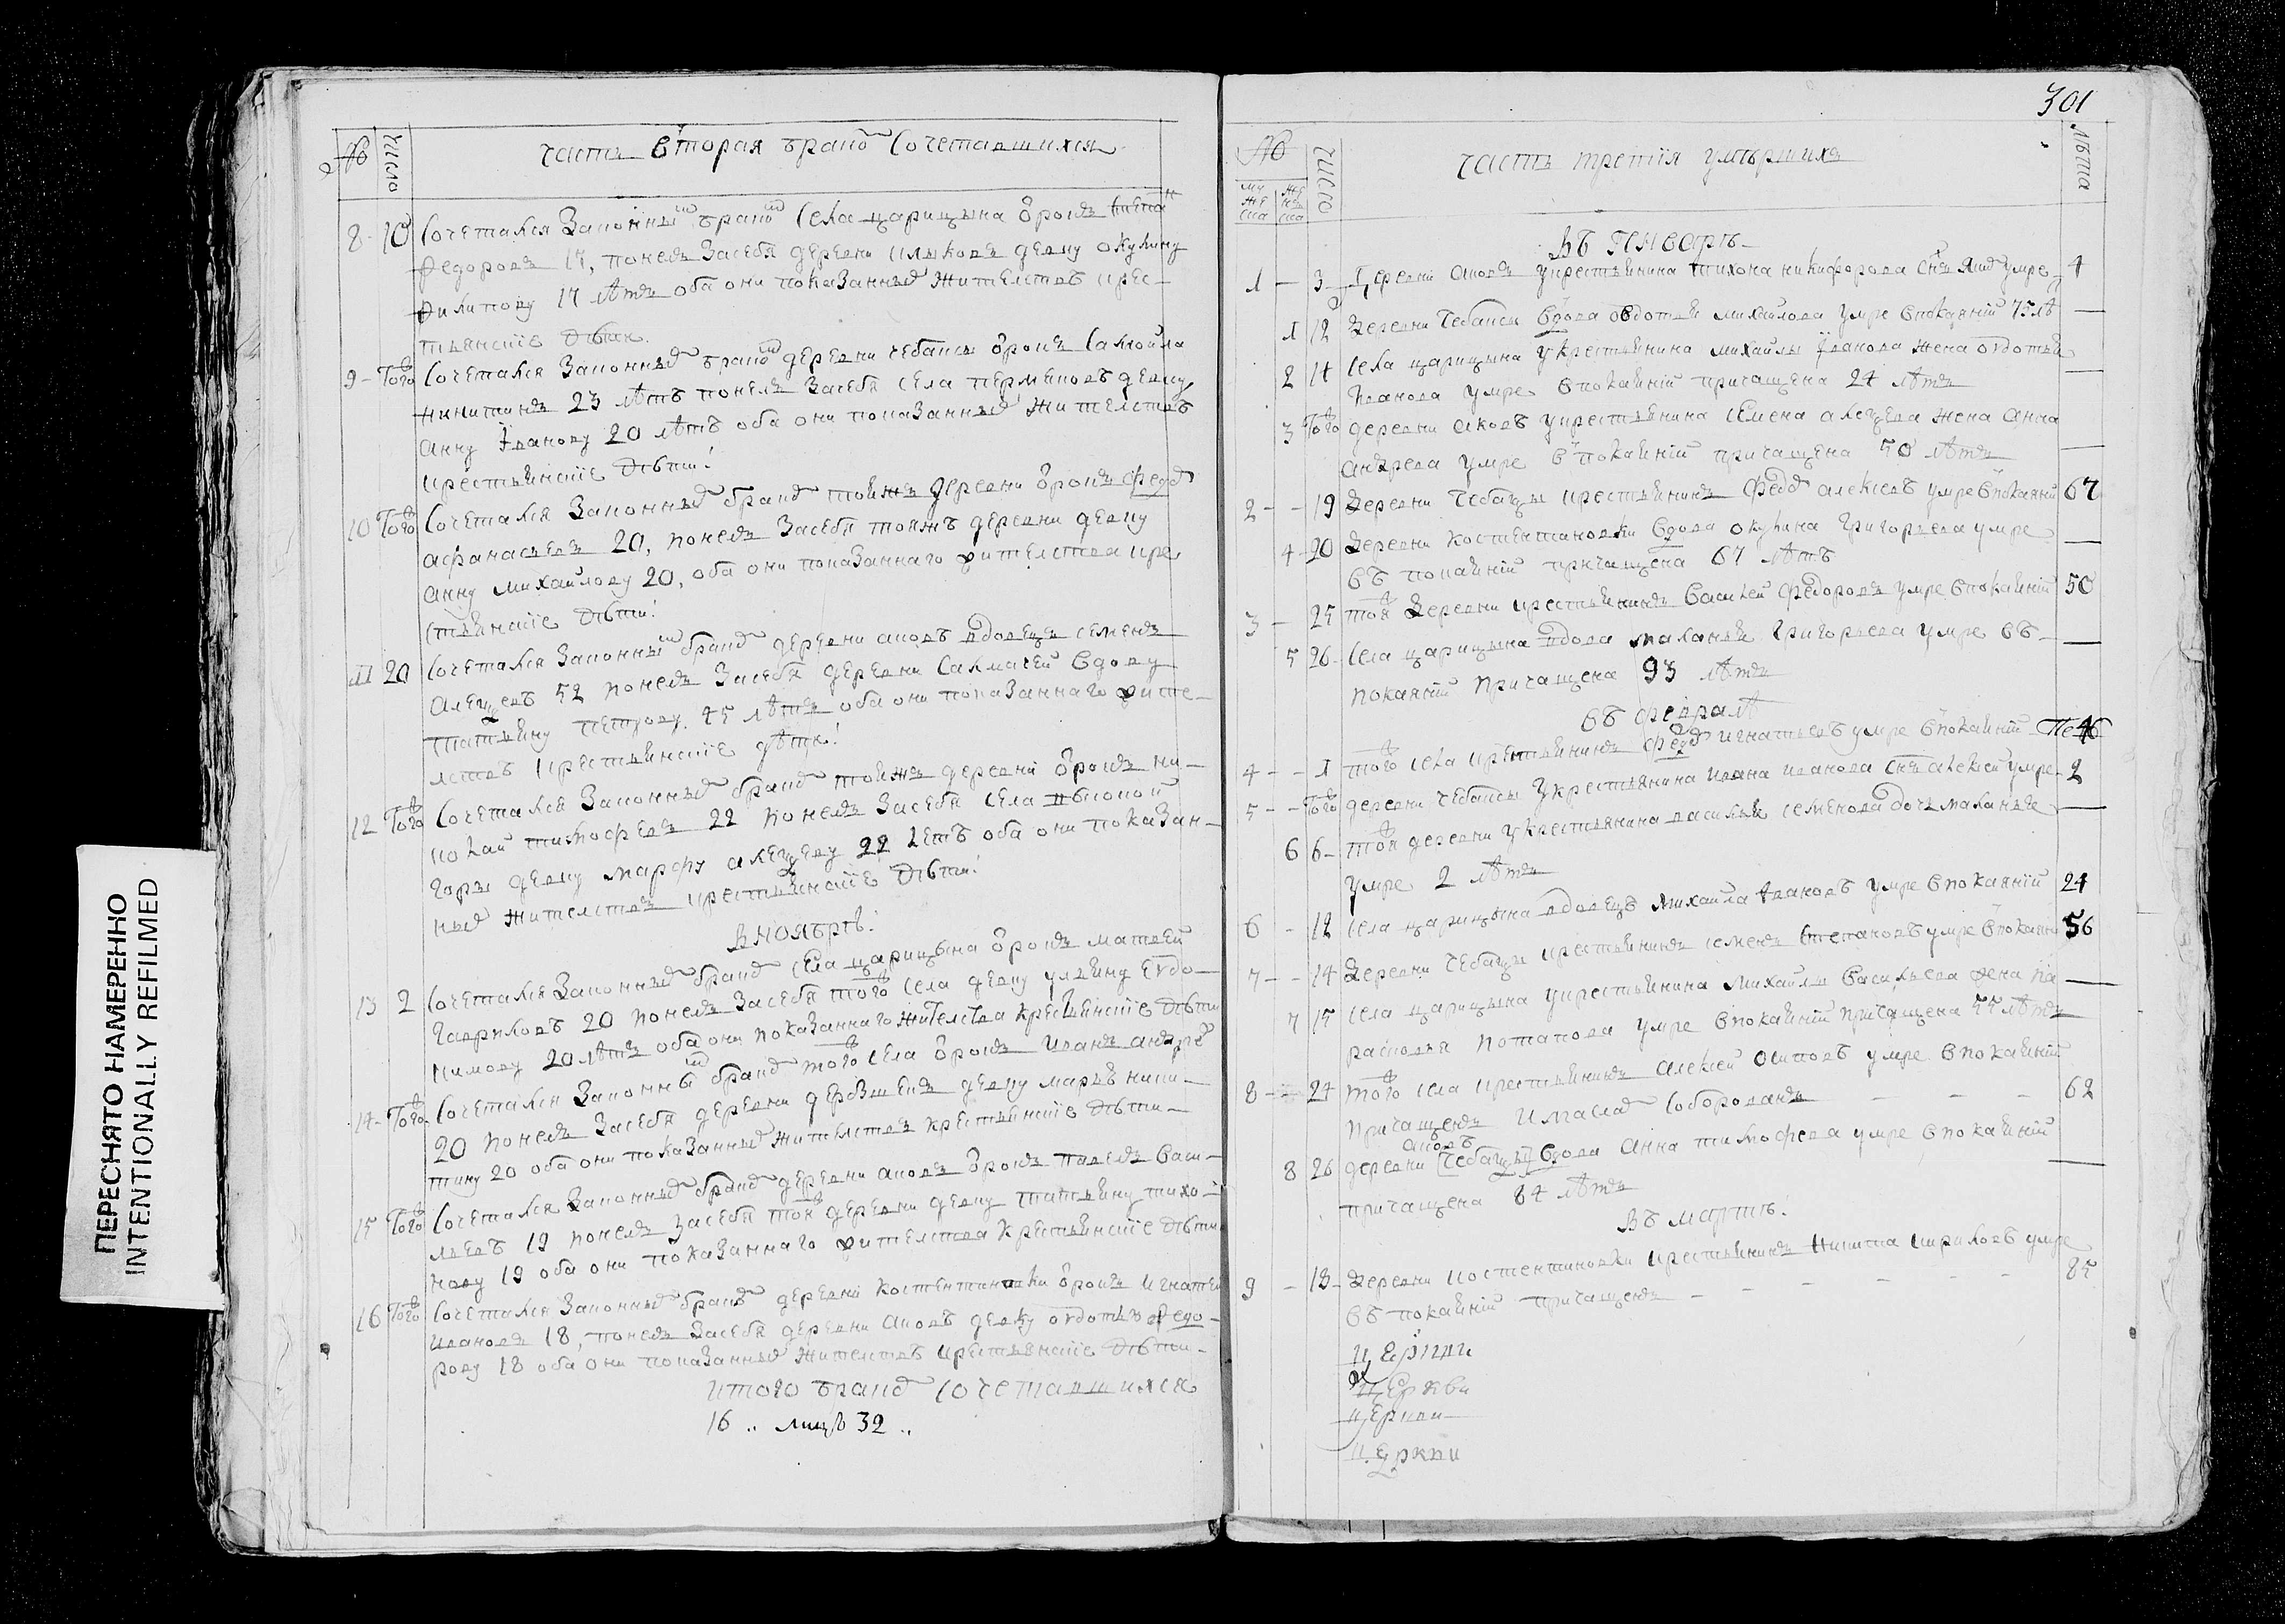 ПЕРЕСНЯТО НАМЕРЕННО
INTENTIONALLY REFILMED
№ число часть вторая бракоᵐ сочетавшихся
8 10 Сочетался законныᵐ бракоᵐ села царицына отрокъ степаⁿ
федоровъ 17, понелъ засебя деревни девку окулину
филипову 17 лѣтъ оба они показанныхъ жителствъ крес-
тьянскіе дѣти.
9 - Того Сочетался законныᵐ бракоᵐ деревни чебаксы отрокъ самойла
никитинъ 23 лѣтъ понелъ засебя села девку
анну Iванову 20 лѣтъ оба они показанныхъ жителствъ
крестьянскіе дѣти.
10 Того Сочетался законныᵐ бракоᵐ тоижъ деревни отрокъ федоᵖ
афанасьевъ 20, понелъ засебя тояжъ деревни девку
анну михайлову 20, оба они показаннаго жителства кре
стьянскіе дѣти.
11 20 Сочетался законныᵐ бракоᵐ деревни аковъ вдовецъ семенъ
алеѯеевъ 52 понелъ засебя деревни вдову
татьяну петрову 45 лѣтъ оба они показаннаго жите-
лствъ крестьянскіе дѣти.
12 Того Сочетался законныᵐ бракоᵐ тоижъ деревни отрокъ ни-
колай тимофеевъ 22 понелъ засебя села
горы девку марфу алеѯееву 22 летъ оба они показан-
ныхъ жителствъ крестьянскіе дѣти.
В ноябрѣ.
13 2 Сочетался законныᵐ бракоᵐ села царицына отрокъ матвей
гавриловъ 20 понелъ засебя того села девку ульяну евдо-
кимову 20 лѣтъ оба они показаннаго жителства крестьянскіе дѣти
14 - Того Сочетался законныᵐ бракоᵐ того села отрокъ иванъ андреⁱ
20 понелъ засебя деревни девку марью ники-
тину 20 оба они показанныхъ жителствъ крестьянскіе дѣти -
15 Того Сочетался законныᵐ бракоᵐ деревни аковъ отрокъ павелъ васи-
льевъ 19 понелъ засебя тои деревни девку татьяну тихо-
нову 19 оба они показаннаго жителства крестьянскіе дѣти
16 Того Сочетался законныᵐ бракоᵐ деревни костентиновки отрокъ игнатей
ивановъ 18, понелъ засебя деревни аковъ девку овдотью федо-
рову 18 оба они показанныхъ жителствъ крестьянскіе дѣти -
итого бракоᵐ сочетавшихся
16 .. лицъ 32 ..
301
№ мужеска женска число часть третiя умершихъ лѣта
Въ генварѣ
1 - 3 Деревни аковъ укрестьянина тихона никифорова снъ яковъ умре 4
1 12 Деревни чебаксы вдова овдотья михайлова умре впокаяній 75 лѣ
2 14 Села царицына укрестьянина михайлы Iванова жена овдотья
Iванова умре впокаяній причащена 24 лѣтъ
3 Того деревни аковъ укрестьянина семена алеѯеева жена анна
андреева умре впокаяній причащена 50 лѣтъ
2 - - 19 Деревни чебаксы крестьянинъ федоᵖ алексеевъ умре впокаяній 67
4 - 20 Деревни костентиновки вдова окулина григорьева умре
въ покаяній причащена 67 лѣтъ
3 - 25 тоя деревни крестьянинъ василей федоровъ умре впокаяній 50
5 26 Села царицына вдова маланья григорьева умре въ
покаяній причащена 93 лѣтъ
въ февралѣ
4 - - 1 того села крестьянинъ федоᵖ игнатьевъ умре впокаяній 46
5 - - Того деревни чебаксы укрестьянина ивана иванова снъ алексей умре 2
6 6 - тоя деревни укрестьянина василья семенова дочь маланья
умре 2 лѣтъ
6 - 12 Села царицына вдовецъ михайла Iвановъ умре впокаяній 24
7 - - 14 Деревни чебаксы крестьянинъ семенъ степановъ умре впокаяній 56
7 15 Села царицына укрестьянина михайлы васильева жена па
расковья потапова умре впокаяній причащена 55 лѣтъ
8 - 24 того села крестьянинъ алексей осиповъ умре впокаяній
причащенъ имаслоᵐ соборованъ - - - 62
аковъ
8 26 деревни [чебаксы] вдова анна тимофеева умре впокаяній
причащена 64 лѣтъ
Въ мартѣ.
9 - 13 - Деревни костентиновки крестьянинъ никита кириловъ умре
въ покаяній причащенъ - - - - - 85
церкви
церкви
церкви
церкви